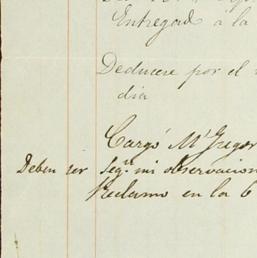 Entregad á la
Deducese por el
dia
Cargó Mc Gregor
Deben ser segn mi observacion
Reclamo en la 6